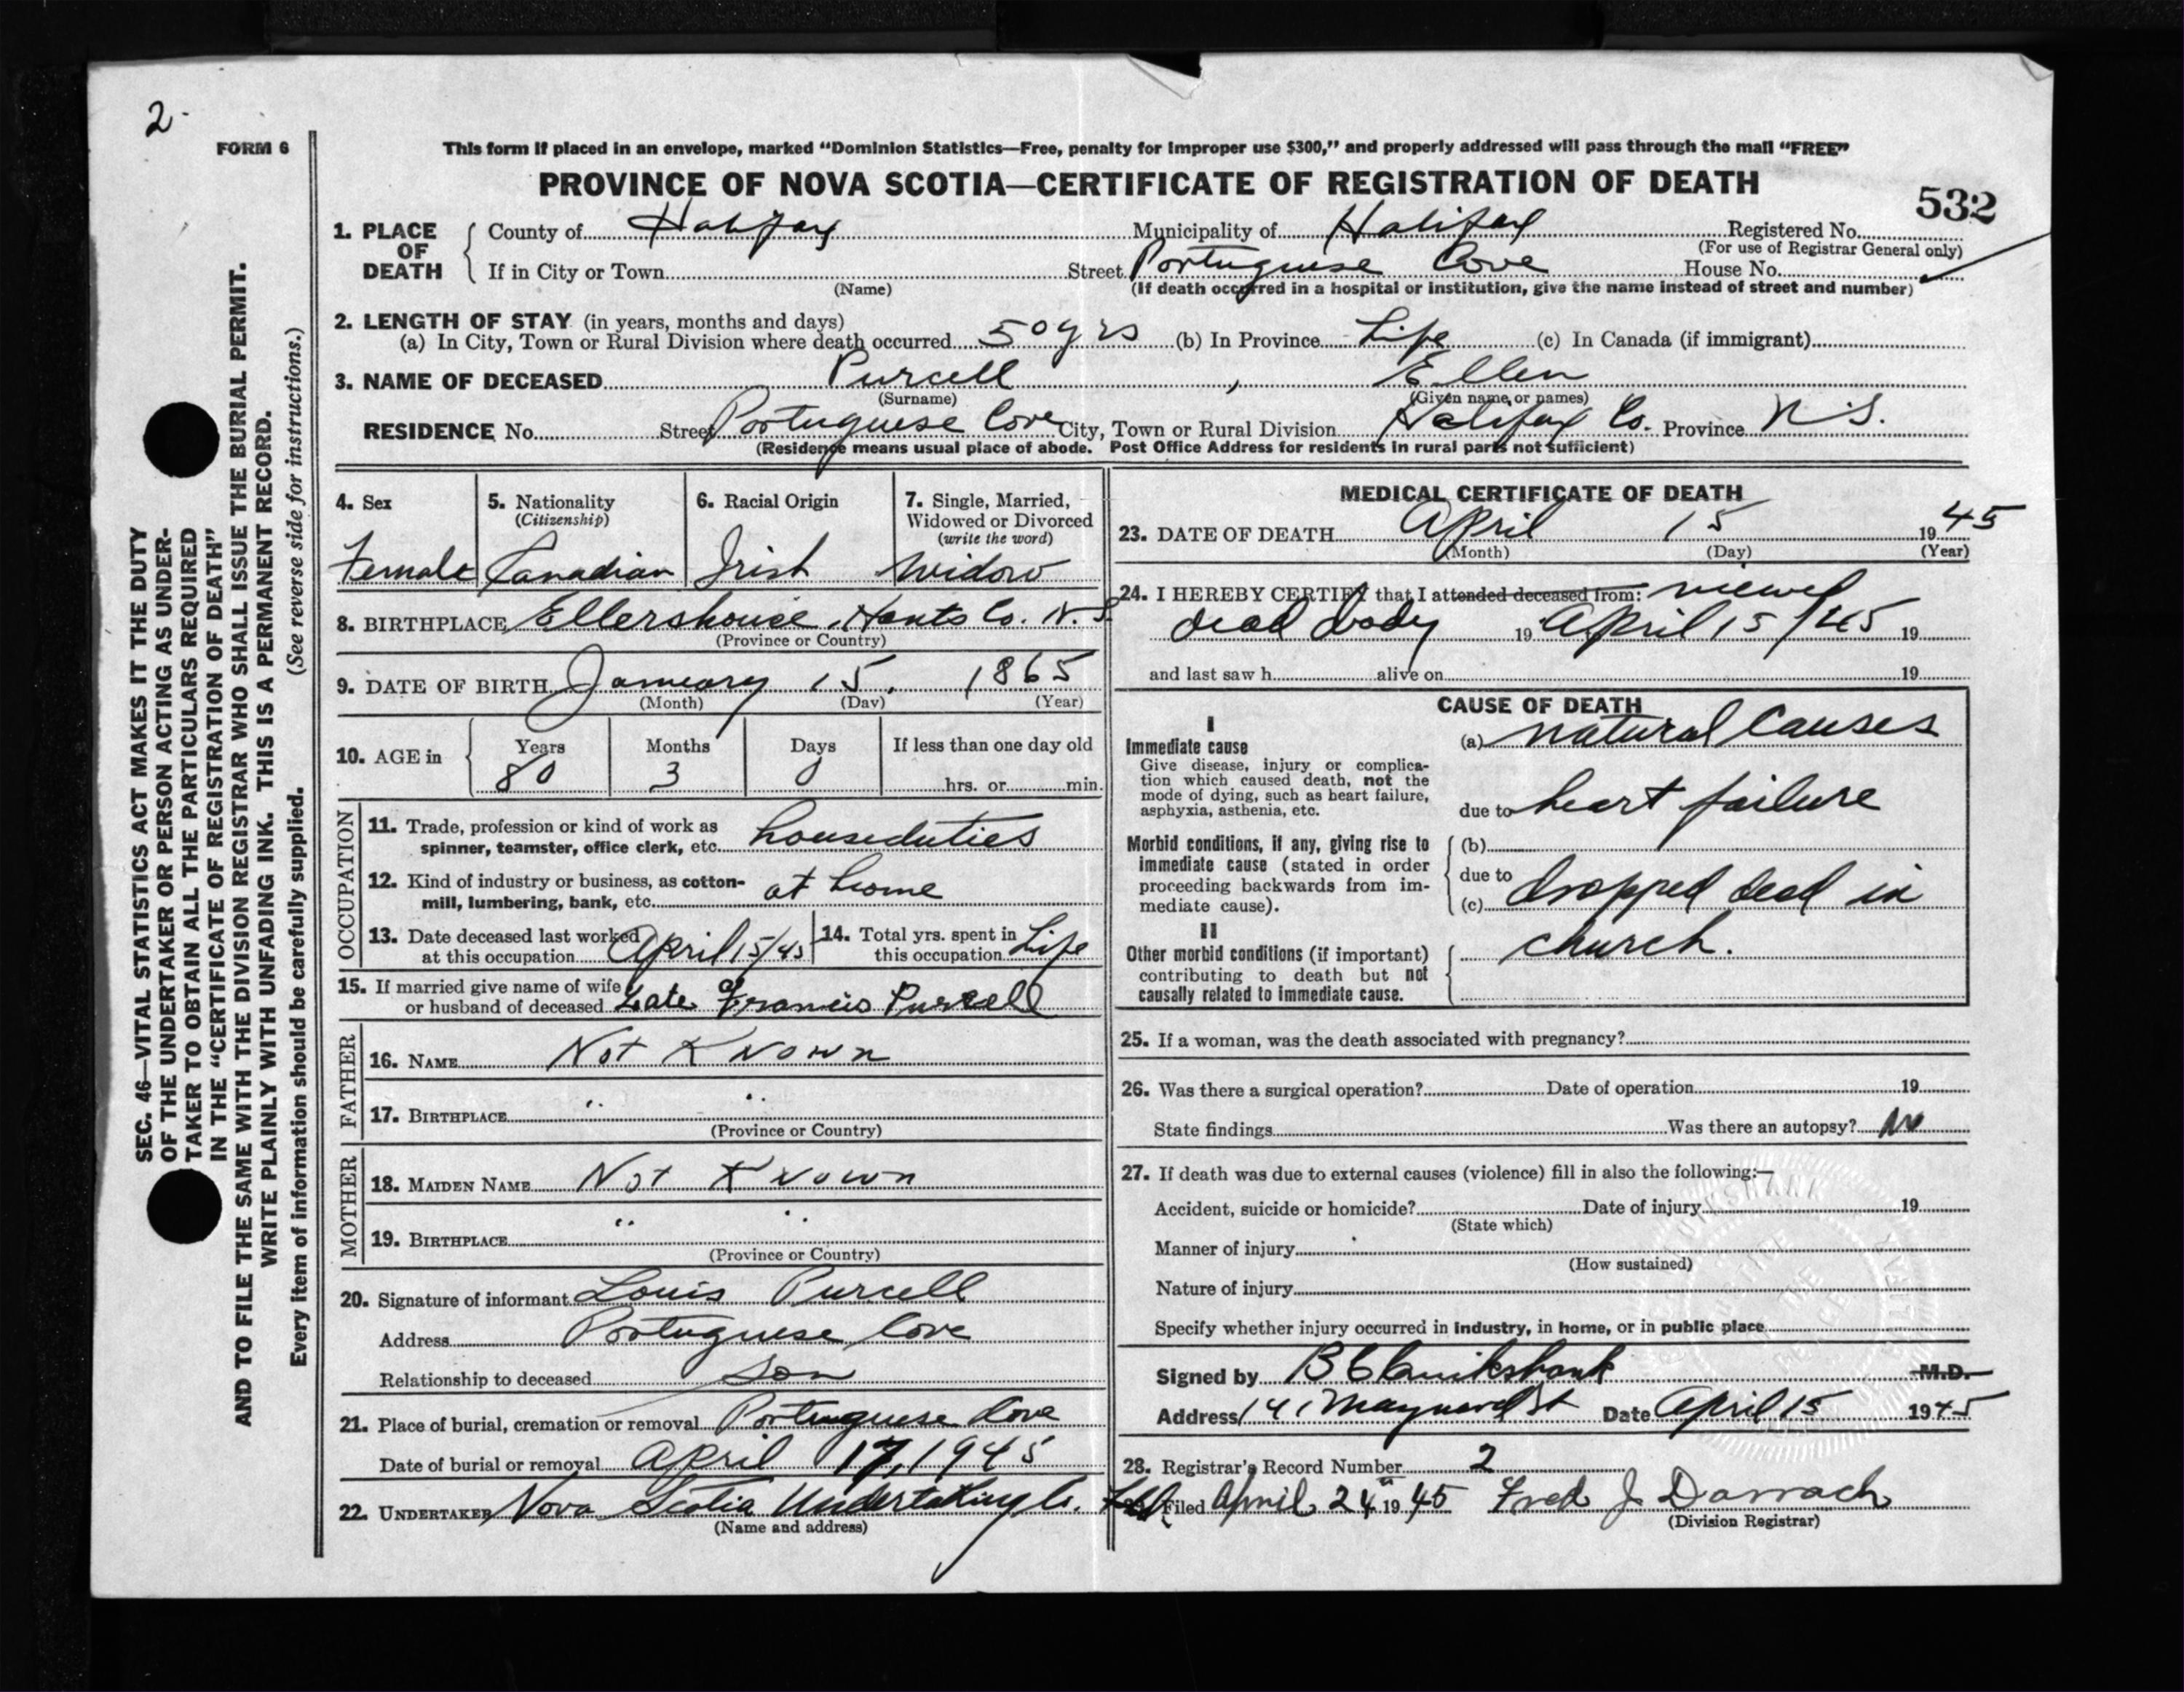 2-
FORM 6
This form if placed in an envelope, marked "Dominion Statistics—Free, penalty for improper use $300," and properly addressed will pass through the mail "FREE"
PROVINCE OF NOVA SCOTIA—CERTIFICATE OF REGISTRATION OF DEATH
532
1. PLACE OF DEATH
County of Halifax Municipality of Halifax Registered No.
(For use of Registrar General only)
If in City or Town Street Portuguese Cove House No.
(Name)
(If death occurred in a hospital or institution, give the name instead of street and number)
2. LENGTH OF STAY (in years, months and days)
(a) In City, Town or Rural Division where death occurred 50 yrs (b) In Province Life (c) In Canada (if immigrant)
3. NAME OF DECEASED Purcell , Ellen
(Surname) (Given name or names)
RESIDENCE No. Street Portuguese Cove City, Town or Rural Division Halifax Co. Province N.S.
(Residence means usual place of abode. Post Office Address for residents in rural parts not sufficient)
4. Sex
Female
5. Nationality
(Citizenship)
Canadian
6. Racial Origin
Irish
7. Single, Married,
Widowed or Divorced
(write the word)
Widow
8. BIRTHPLACE Ellershouse, Hants Co. N.S.
(Province or Country)
9. DATE OF BIRTH January 15, 1865
(Month) (Day) (Year)
10. AGE in
Years Months Days If less than one day old
80 3 0 hrs. or min.
OCCUPATION
11. Trade, profession or kind of work as
spinner, teamster, office clerk, etc. houseduties
12. Kind of industry or business, as cotton-
mill, lumbering, bank, etc. at home
13. Date deceased last worked
at this occupation April 15/45
14. Total yrs. spent in
this occupation Life
15. If married give name of wife
or husband of deceased Late of Francis Purcell
FATHER
16. NAME Not Known
17. BIRTHPLACE " "
(Province or Country)
MOTHER
18. MAIDEN NAME Not Known
19. BIRTHPLACE " "
(Province or Country)
20. Signature of informant Louis Purcell
Address Portuguese Cove
Relationship to deceased Son
21. Place of burial, cremation or removal Portuguese Cove
Date of burial or removal April 17, 1945
22. UNDERTAKER Nova Scotia Undertaking Co. Ltd.
(Name and address)
MEDICAL CERTIFICATE OF DEATH
23. DATE OF DEATH April 15 1945
(Month) (Day) (Year)
24. I HEREBY CERTIFY that I attended deceased from: viewed
dead body 19 April 15/45 19
and last saw h alive on 19
CAUSE OF DEATH
I
Immediate cause
Give disease, injury or complica-
tion which caused death, not the
mode of dying, such as heart failure,
asphyxia, asthenia, etc.
(a) natural causes
due to heart failure
Morbid conditions, if any, giving rise to
immediate cause (stated in order
proceeding backwards from im-
mediate cause).
(b)
due to
(c) dropped dead in
church.
II
Other morbid conditions (if important)
contributing to death but not
causally related to immediate cause.
25. If a woman, was the death associated with pregnancy?
26. Was there a surgical operation? Date of operation 19
State findings Was there an autopsy? No
27. If death was due to external causes (violence) fill in also the following:—
Accident, suicide or homicide? Date of injury 19
(State which)
Manner of injury
(How sustained)
Nature of injury
Specify whether injury occurred in industry, in home, or in public place
Signed by B Cruikshank M.D.
Address 141 Maynard St Date April 15 1945
28. Registrar's Record Number 2
Filed April 24" 1945 Fred J Darrach
(Division Registrar)
SEC. 46—VITAL STATISTICS ACT MAKES IT THE DUTY
OF THE UNDERTAKER OR PERSON ACTING AS UNDER-
TAKER TO OBTAIN ALL THE PARTICULARS REQUIRED
IN THE "CERTIFICATE OF REGISTRATION OF DEATH"
AND TO FILE THE SAME WITH THE DIVISION REGISTRAR WHO SHALL ISSUE THE BURIAL PERMIT.
WRITE PLAINLY WITH UNFADING INK. THIS IS A PERMANENT RECORD.
Every item of information should be carefully supplied. (See reverse side for instructions.)